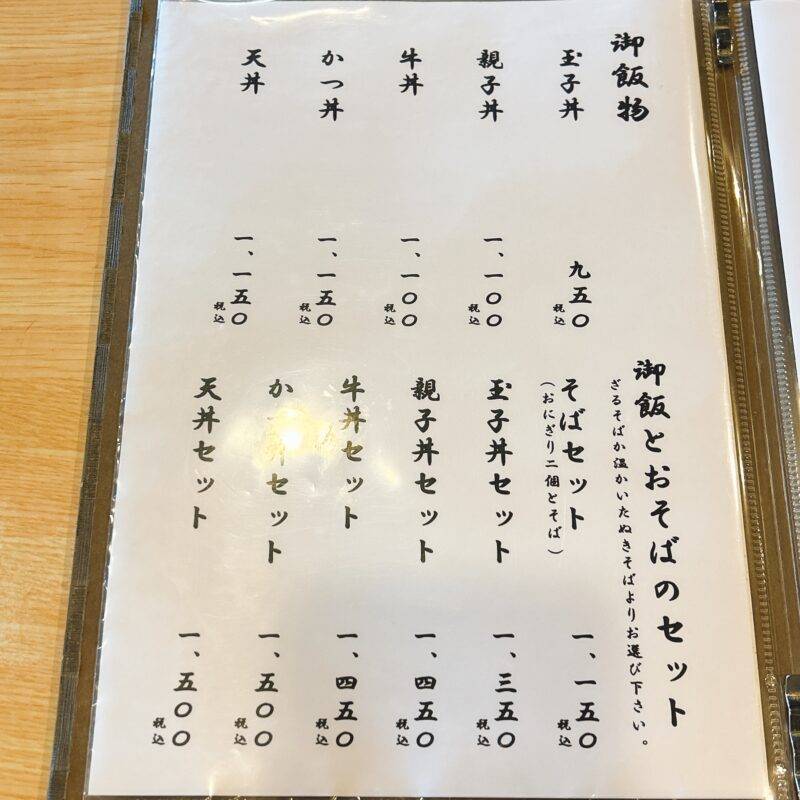 御飯物
玉子丼 九五〇 税込
親子丼 一、一〇〇 税込
牛丼 一、一〇〇 税込
かつ丼 一、一五〇 税込
天丼 一、一五〇 税込
御飯とおそばのセット
ざるそばか温かいたぬきそばよりお選び下さい。
そばセット 一、一五〇 税込
(おにぎり二個とそば)
玉子丼セット 一、三五〇 税込
親子丼セット 一、四五〇 税込
牛丼セット 一、四五〇 税込
かつ丼セット 一、五〇〇 税込
天丼セット 一、五〇〇 税込